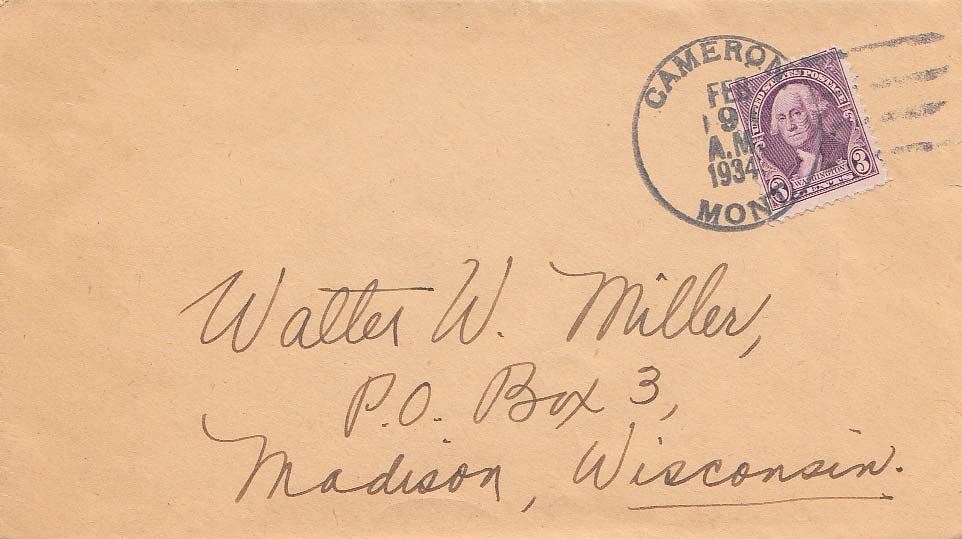 CAMERON
FEB
9
A.M.
1934
MONT
UNITED STATES POSTAGE
3 WASHINGTON 3
CENTS
Walter W. Miller,
P.O. Box 3,
Madison, Wisconsin.